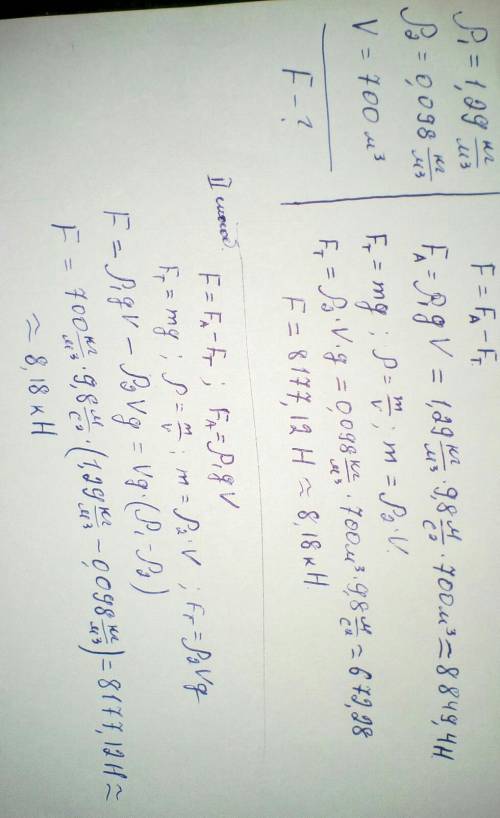 ρ₁ = 1,29 кг/м³
ρ₂ = 0,098 кг/м³
V = 700 м³
F - ?
F = Fₐ - Fт.
Fₐ = ρ₁gV = 1,29 кг/м³ · 9,8 м/с² · 700 м³ ≈ 8849,4 Н.
Fт = mg ; ρ = m/V ; m = ρ₂·V.
Fт = ρ₂·V·g = 0,098 кг/м³ · 700 м³ · 9,8 м/с² ≈ 672,28
F = 8177,12 Н ≈ 8,18 кН.
II способ.
F = Fₐ - Fт ; Fₐ = ρ₁gV
Fт = mg ; ρ = m/V ; m = ρ₂·V ; Fт = ρ₂Vg
F = ρ₁gV - ρ₂Vg = Vg·(ρ₁ - ρ₂)
F = 700 кг/м³ · 9,8 м/с² · (1,29 кг/м³ - 0,098 кг/м³) = 8177,12 Н ≈
≈ 8,18 кН